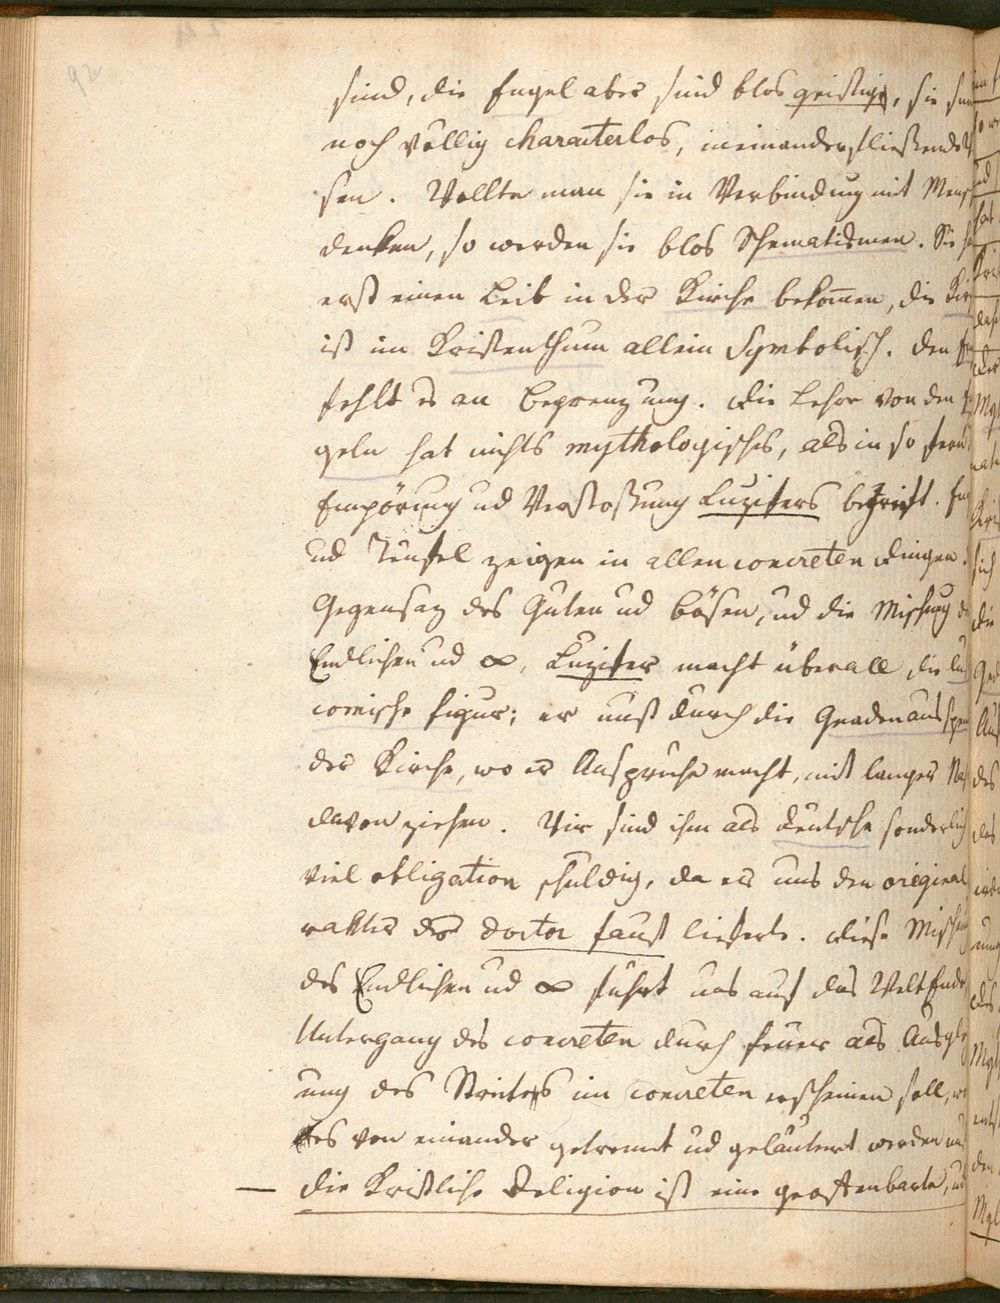 92
sind, die Engel aber sind blos geistige, sie sin
noch völlig charakterlos, ineinanderfließende
sen. Wollte man sie in Verbindung mit Mensch
denken, so werden sie blos Schematismen. Sie
erst einen Leib in der Kirche bekom̄en, die Kir
ist im Kristenthum allein Symbolisch. Den En
fehlt es an Begrenzung. Die Lehre von den
geln hat nichts mythologisches, als in so fern
Empörung ud Verstoßung Luzifers betrift. En
ud Teufel zeigen in allen concreten Dingen
Gegensaz des Guten ud Bösen, ud die Mischung d
Endlichen ud ∞. Luzifer macht überall die lu
comische Figur; er muß durch die Gnadenausspen
der Kirche, wo er Ansprüche macht, mit langer Na
davon ziehen. Wir sind ihm als Deutsche sonderlich
viel obligation schuldig, da er uns den original
rakter des Doctor Faust lieferte. Diese Mischung
des Endlichen ud ∞ führt uns auf das Weltende
Untergang des concreten durch Feuer als Ausgl
ung des Streites im concreten erscheinen soll, w
es von einander getrennt ud geläutert werden mu
— die Kristliche Religion ist eine geoffenbarte, ud